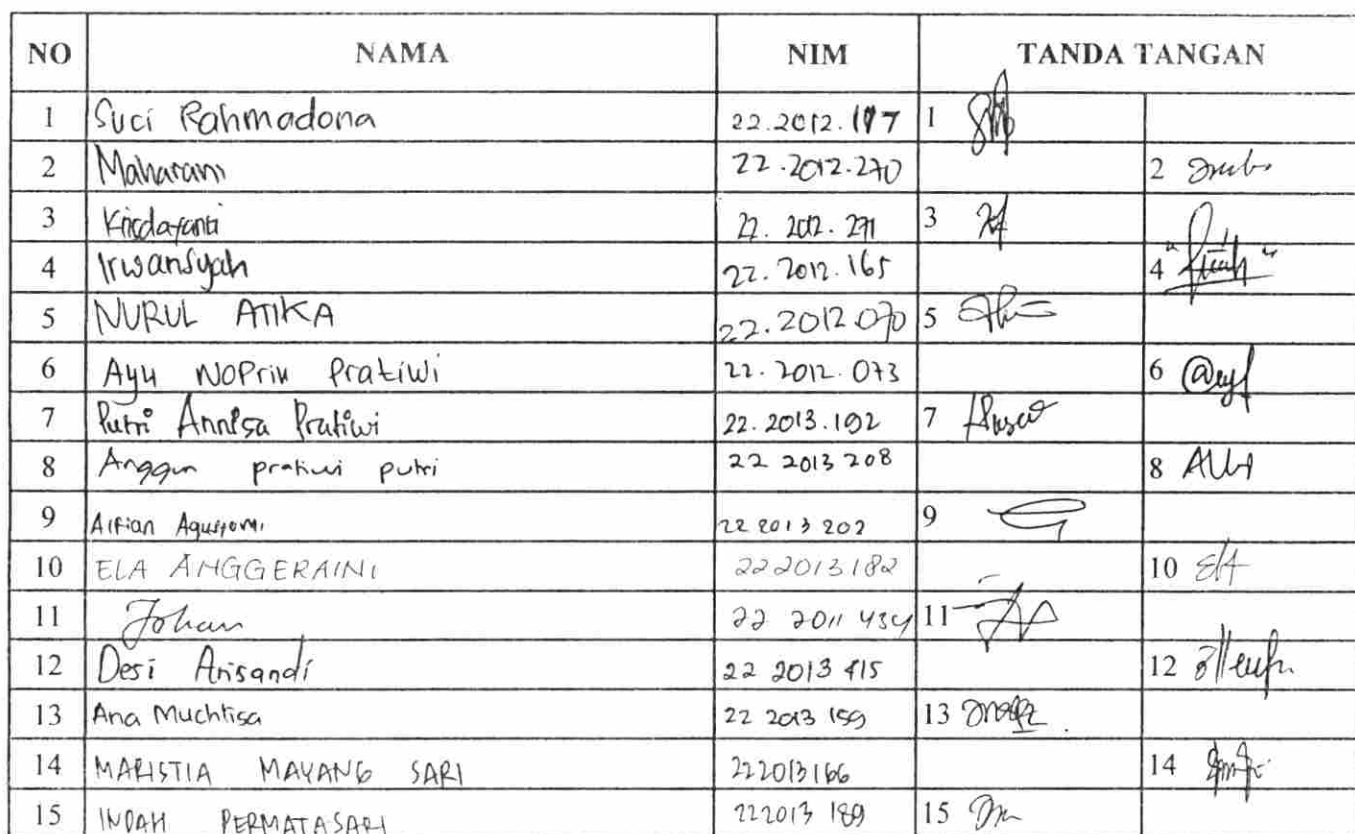 NO NAMA NIM TANDA TANGAN
1 Suci Rahmadona 22.2012.177 1
2 Maharani 22.2012.270 2
3 Krisdayanti 22.2012.271 3
4 Irwansyah 22.2012.165 4
5 NURUL ATIKA 22.2012.070 5
6 Ayu Pratiwi 22.2012.073 6
7 Putri Annisa Pratiwi 22.2013.192 7
8 Anggun pratiwi putri 22 2013 208 8
9 Alfian 22 2013 202 9
10 ELA ANGGERAINI 222013182 10
11 Johan 22 2011 434 11
12 Desi Arisandi 22 2013 415 12
13 Ana Muchlisa 22 2013 159 13
14 MARISTIA MAYANG SARI 222013166 14
15 INDAH PERMATASARI 222013 189 15